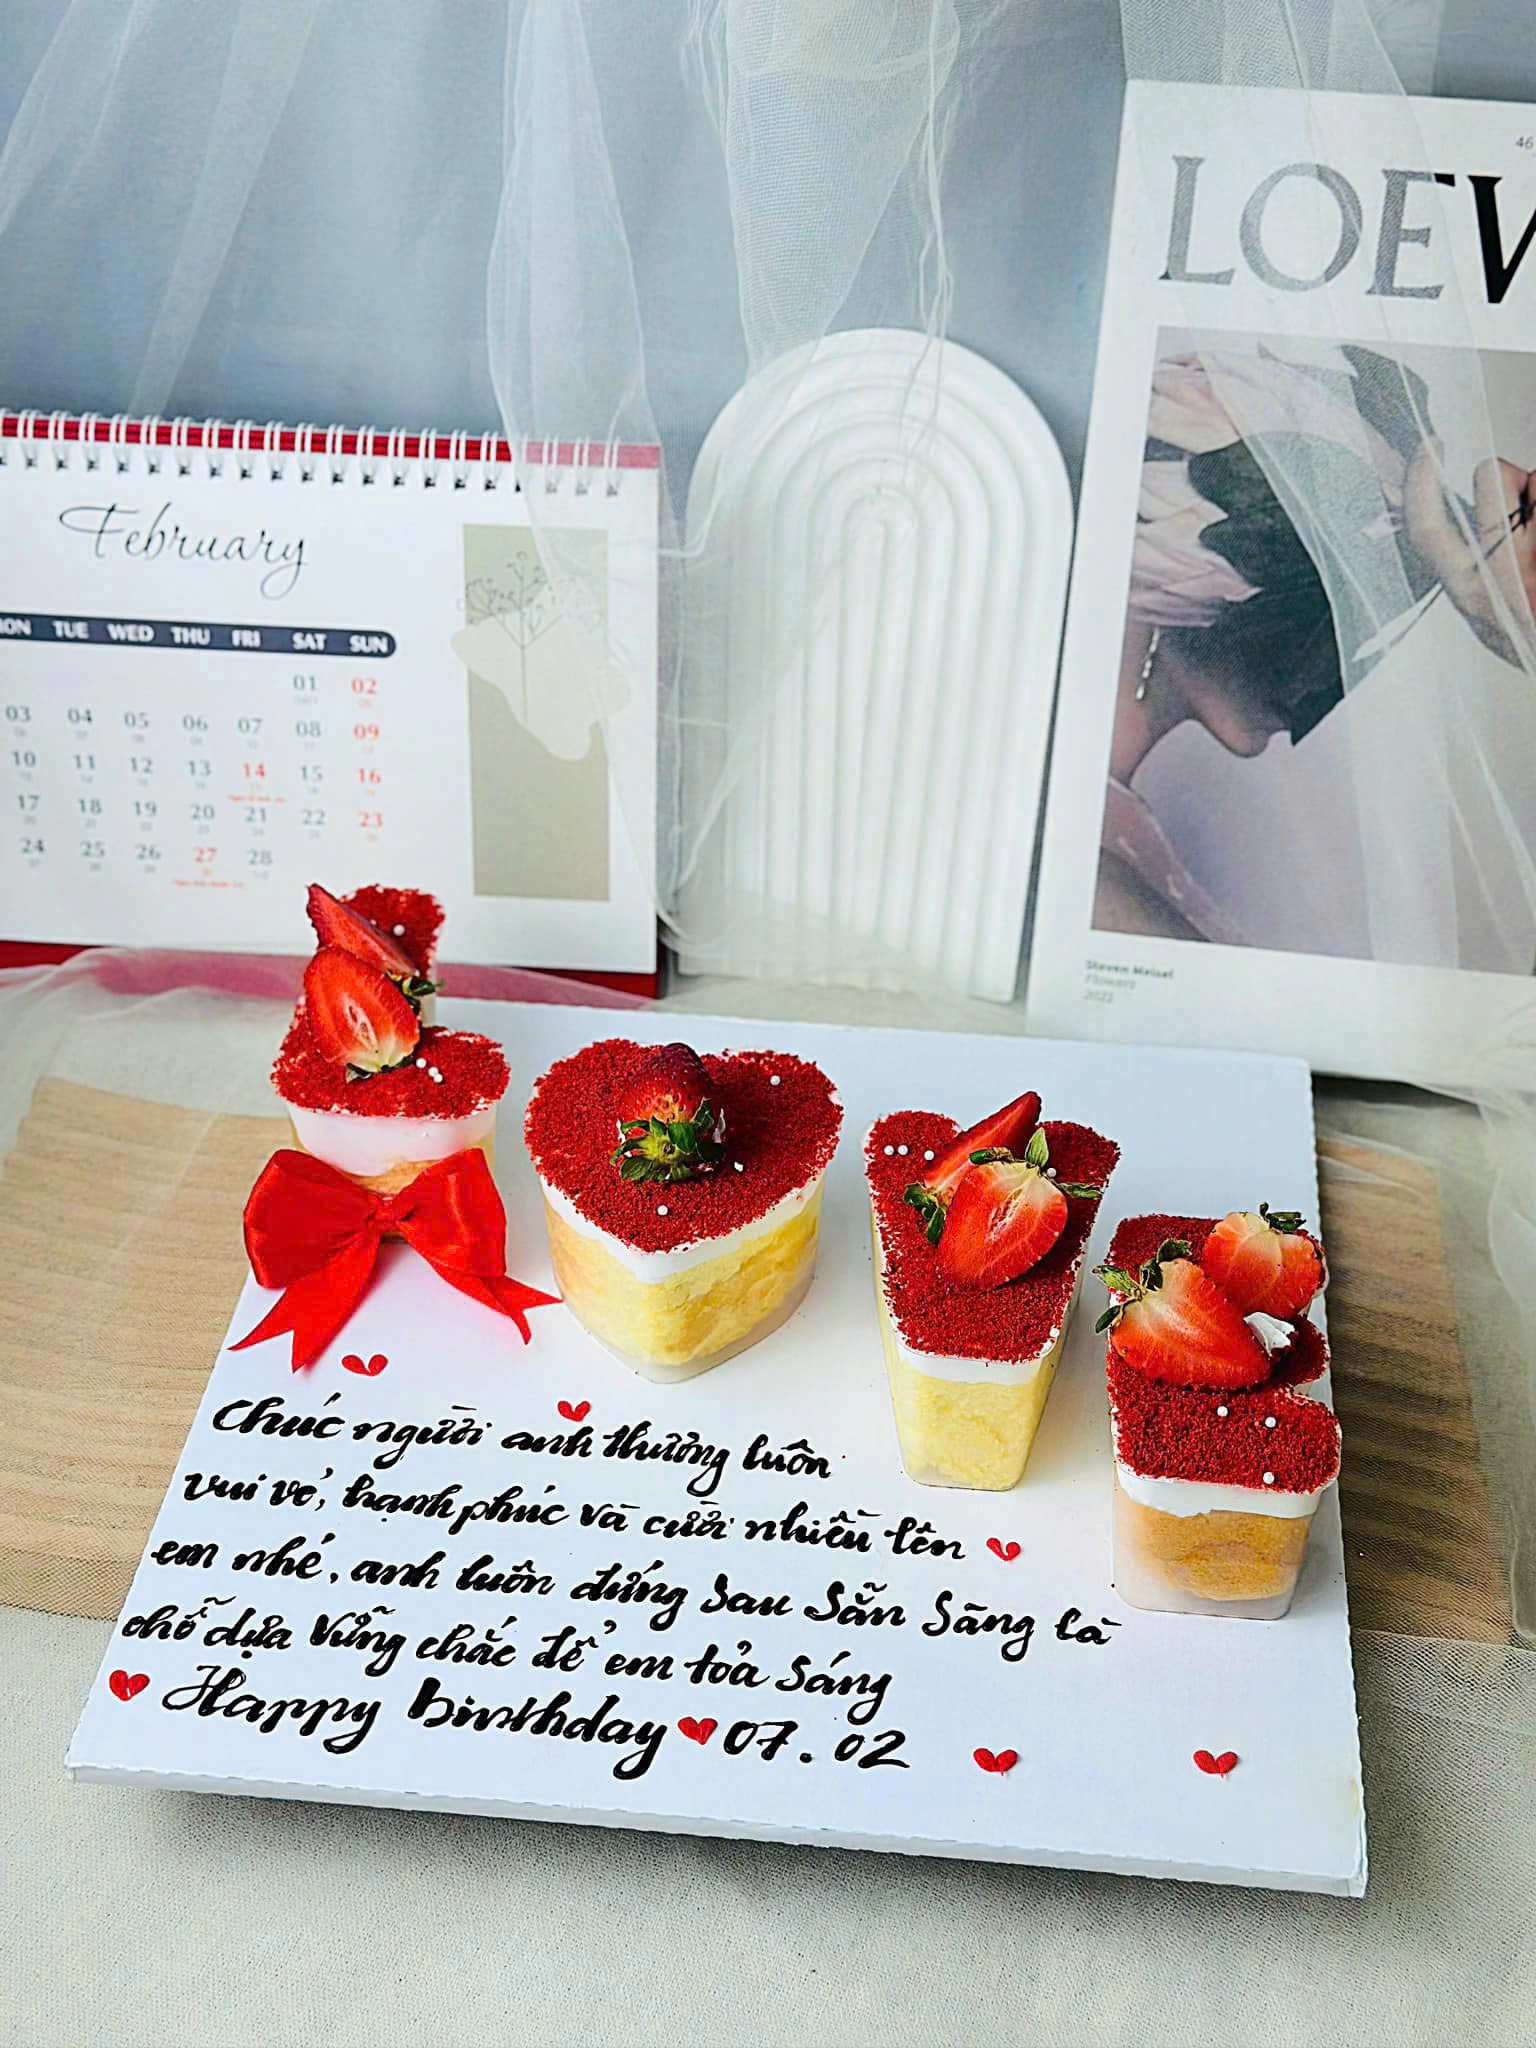 February
MON TUE WED THU FRI SAT SUN
01 02
03 04 05 06 07 08 09
10 11 12 13 14 15 16
17 18 19 20 21 22 23
24 25 26 27 28
46
LOEW
Steven Meisel
Flowers
2022
Chúc người anh thương luôn
vui vẻ, hạnh phúc và cười nhiều lên
em nhé, anh luôn đứng sau sẵn sàng là
chỗ dựa vững chắc để em tỏa sáng
Happy Birthday 07.02